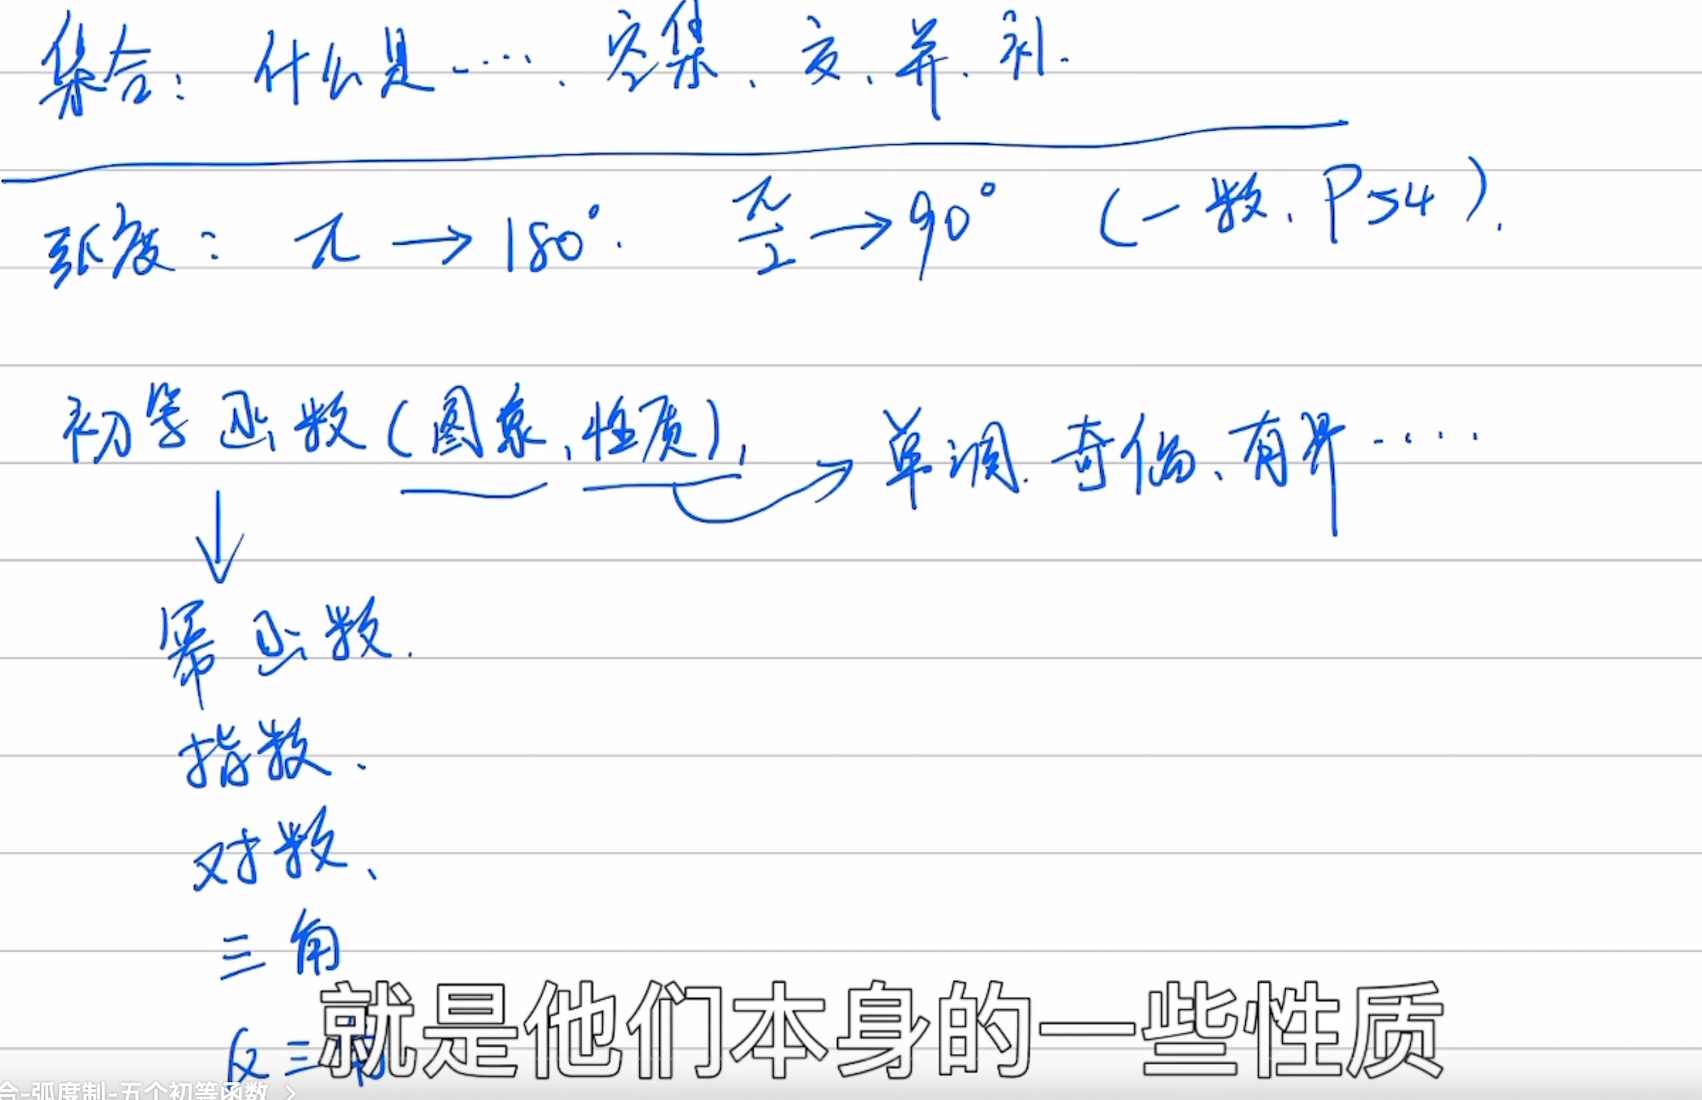 集合：什么是……、空集、交、并、补.
弧度：π → 180°. π/2 → 90° (一数、P54).
初等函数(图象、性质)， → 单调、奇偶、有界……
↓
幂函数.
指数.
对数、
三角
反三角
就是他们本身的一些性质
合-弧度制-五个初等函数 >